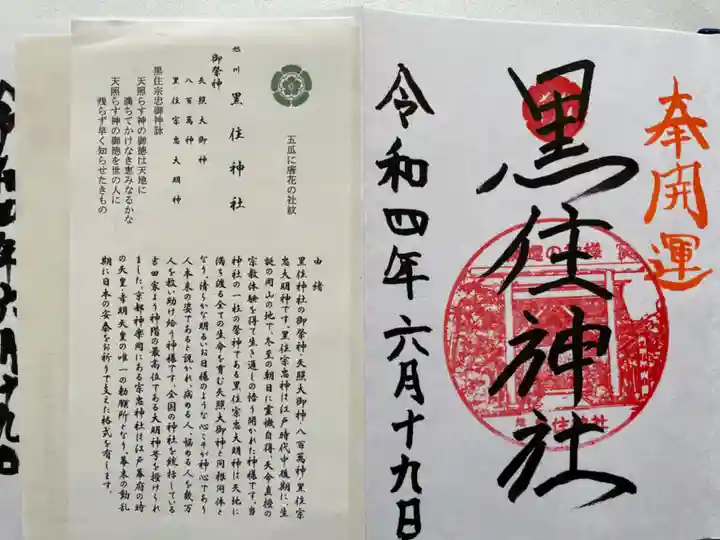 奉開運
黒住神社
令和四年六月十九日
の神様
住神社
五瓜に唐花の社紋
旭川 黒住神社
御祭神
天照大御神
八百萬神
黒住宗忠大明神
黒住宗忠御神詠
天照らす神の御徳は天地に
満ちてかけなき恵みなるかな
天照らす神の御徳を世の人に
残らず早く知らせたきもの
由緒
黒住神社の御祭神・天照大御神・八百萬神・黒住宗
忠大明神です。黒住宗忠神は江戸時代中後期に、生
誕の岡山の地で、冬至の朝日に霊機自得・天命直授の
宗教体験を得て生き通しの悟り開かれた神様です。当
神社の一社の祭神である黒住宗忠大明神は天地に
満ち渡る全ての生命を育む天照大御神と同根同体と
なり、清らかな明るいお日様のような心こそが神心であり
人本来の姿であると説かれ、病める人、悩める人を数万
人を救い助け給う神様です。全国の神社を統括している
吉田家より神階の最高位である大明神号を授けられ
ました。京都神楽岡にある宗忠神社は江戸幕府の時
の天皇・孝明天皇の唯一の勅願所となり、幕末の動乱
期に日本の安泰をお祈りで支えた格式を有します。
年六月十九日